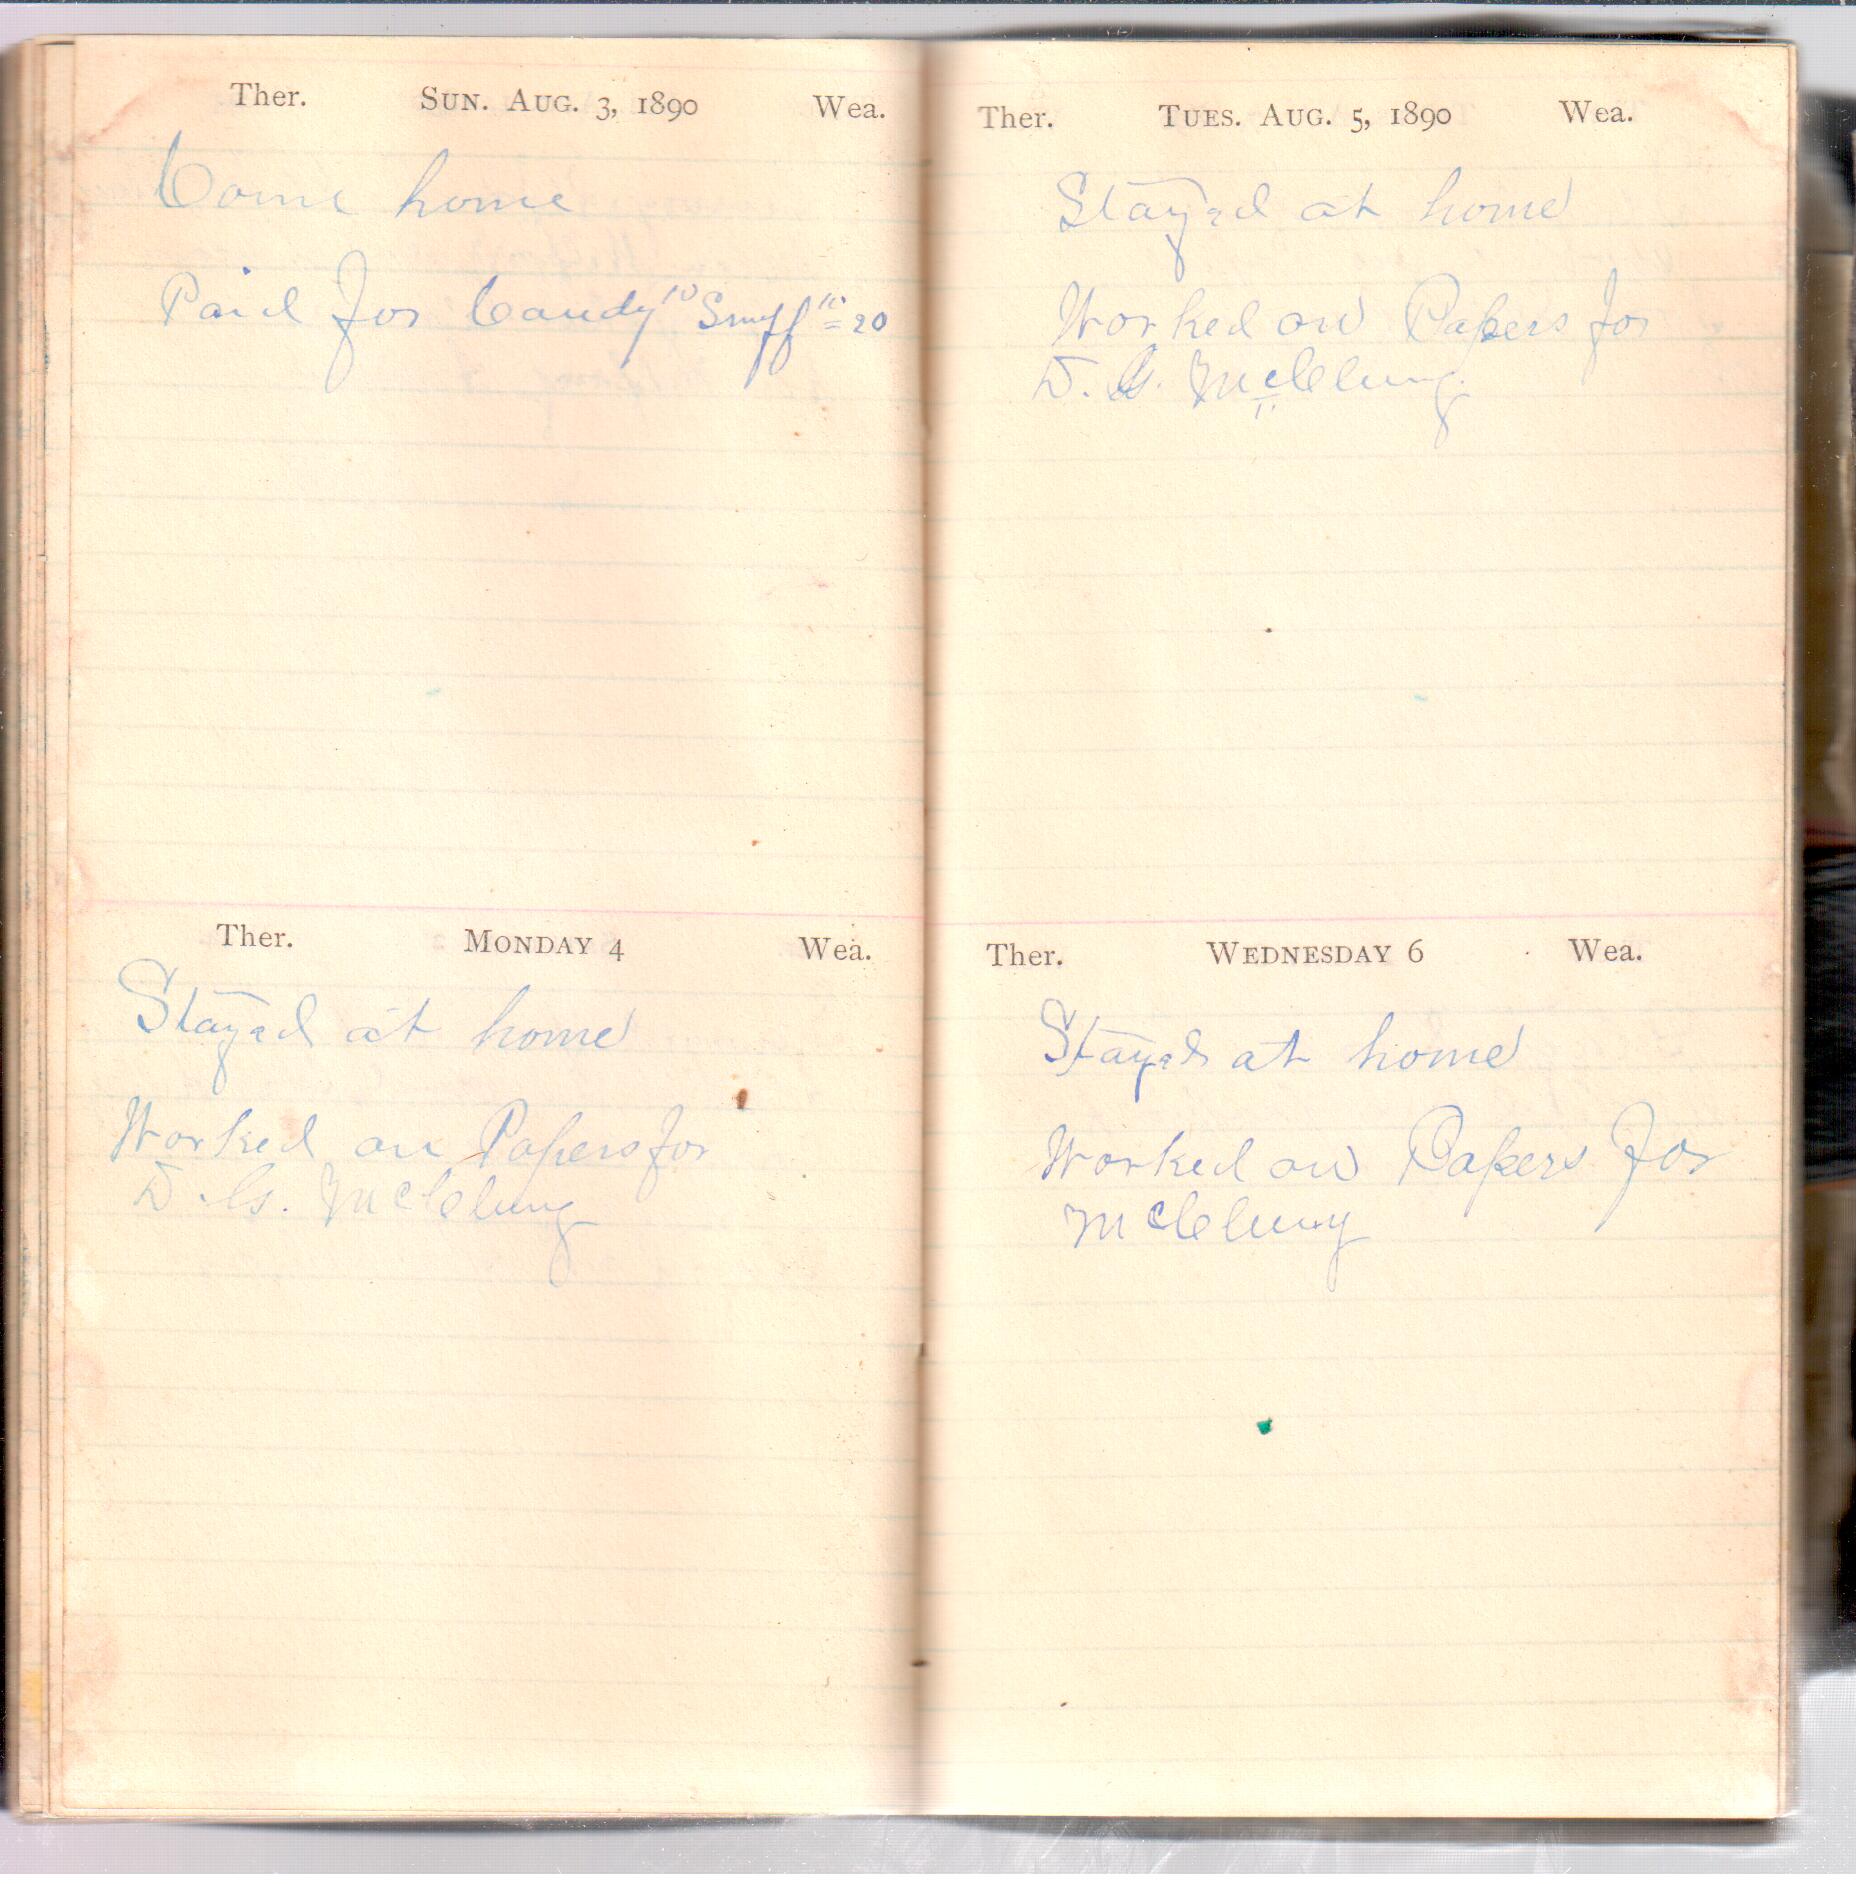 Ther. SUN. AUG. 3, 1890 Wea.
Come home
Paid for Candy 10 Snuff 10 = 20
Ther. MONDAY 4 Wea.
Stayed at home
Worked on Papers for
D. G. McClung
Ther. TUES. AUG. 5, 1890 Wea.
Stayed at home
Worked on Papers for
D. G. McClung
Ther. WEDNESDAY 6 Wea.
Stayed at home
Worked on Papers for
McClung